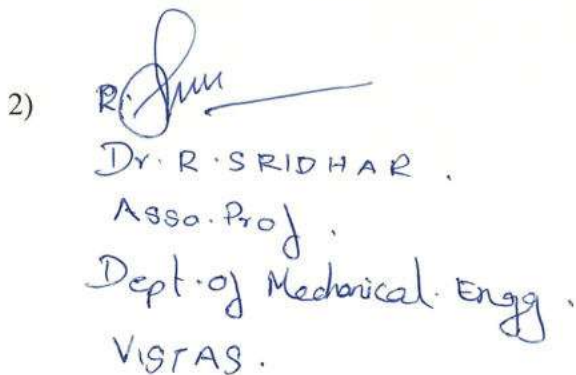 2)
R.
Dr. R. SRIDHAR.
Asso. Prof.
Dept. of Mechanical. Engg.
VISTAS.